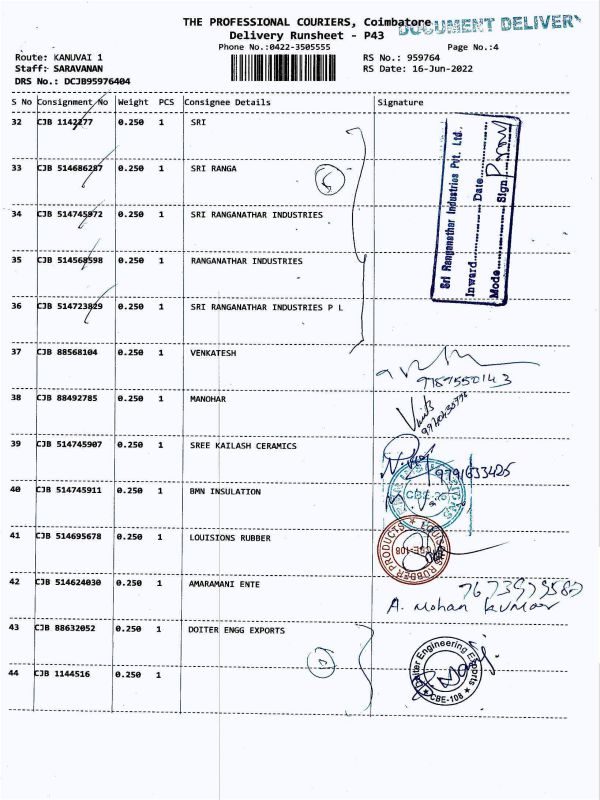 THE PROFESSIONAL COURIERS, Coimbatore
DOCUMENT DELIVERY
Delivery Runsheet - P43
Phone No.:0422-3505555
Page No.:4
Route: KANUVAI 1
RS No.: 959764
Staff: SARAVANAN
RS Date: 16-Jun-2022
DRS No.: DCJB95976404
S No Consignment No Weight PCS Consignee Details Signature
32 CJB 1142277 0.250 1 SRI
33 CJB 514686287 0.250 1 SRI RANGA
34 CJB 514745972 0.250 1 SRI RANGANATHAR INDUSTRIES
35 CJB 514568598 0.250 1 RANGANATHAR INDUSTRIES
36 CJB 514723829 0.250 1 SRI RANGANATHAR INDUSTRIES P L
Sri Ranganathar Industries Pvt. Ltd.,
Inward............Date............
Mode............Sign
37 CJB 88568104 0.250 1 VENKATESH
38 CJB 88492785 0.250 1 MANOHAR
39 CJB 514745907 0.250 1 SREE KAILASH CERAMICS
9791633425
40 CJB 514745911 0.250 1 BMN INSULATION
CBE-25
41 CJB 514695678 0.250 1 LOUISIONS RUBBER
LOUIS RUBBER PRODUCTS
CBE-108
42 CJB 514624030 0.250 1 AMARAMANI ENTE
A. Mohan kumar
43 CJB 88632052 0.250 1 DOITER ENGG EXPORTS
Doiter Engineering Exports
CBE-108
44 CJB 1144516 0.250 1